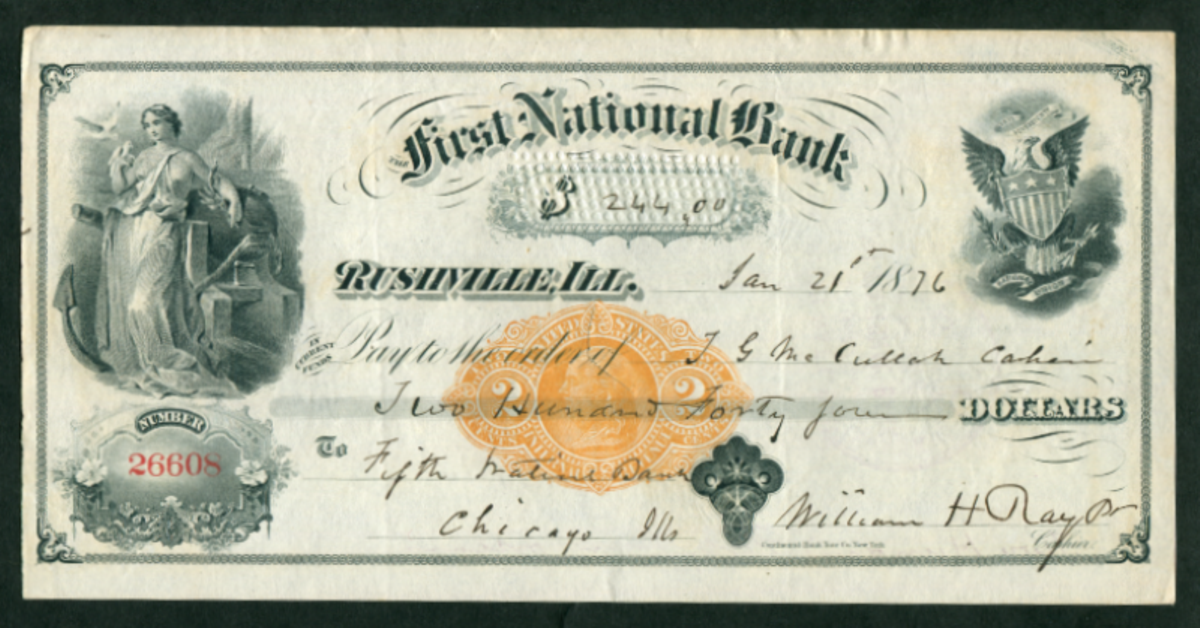 THE First National Bank
$ 244.00
RUSHVILLE, ILL. Jan 21st 1876
IN CURRENT FUNDS Pay to the order of T G McCulloh Cashier
Two Hundred Forty four DOLLARS
UNITED STATES
2 2
NUMBER
26608
To Fifth National Bank
Chicago Ills
William H Ray Pr
Cashier.
Continental Bank Note Co. New York